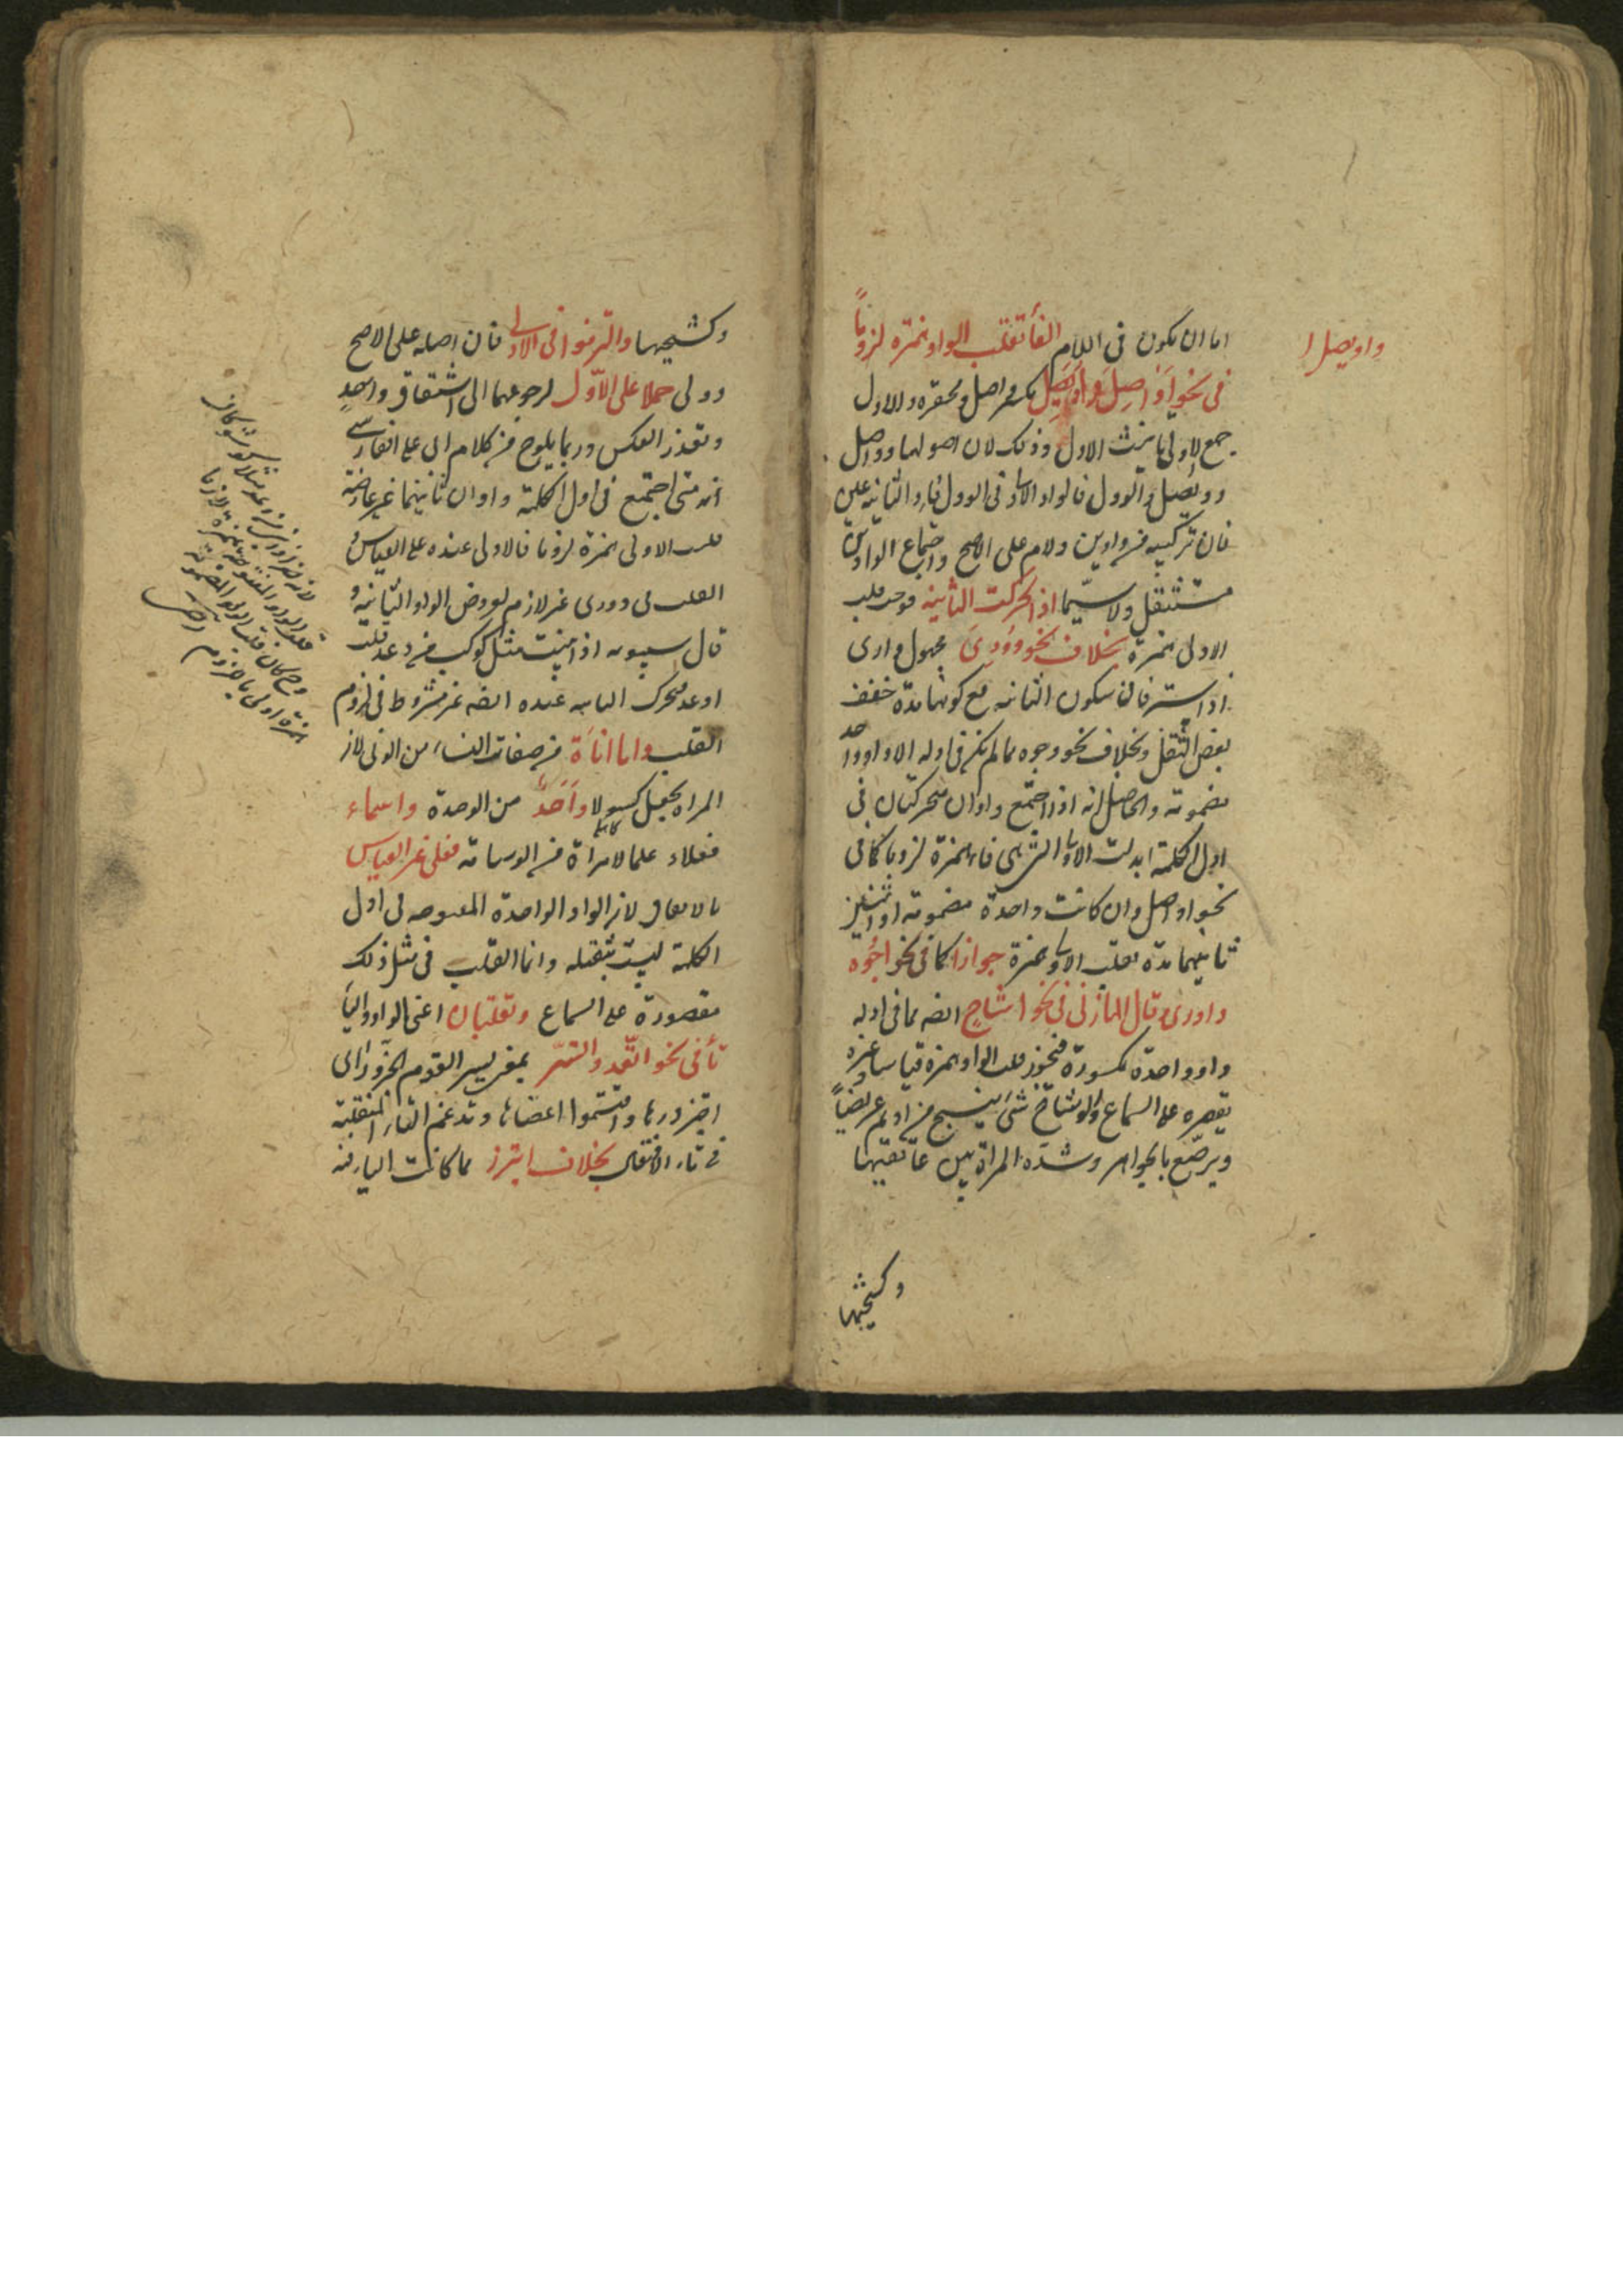 اما ان يكون فى اللام الفأ تقلب الواو همزة لزوما
فى نحو اواصل واويصل مكسر واصل ومحقره والاول
جمع الاولى تأنيث الاول وذلك لان اصولها وواصل
وويصل والوول فالواو الاولى فى الوول فاء والثانية عين
فان تركيبه من واوين ولام على الاصح واجتماع الواوين
مستثقل ولا سيما اذا تحركت الثانية فوجب قلب
الاولى همزة بخلاف نحو وورى مجهول وارى
اذا ستر فان سكون الثانية مع كونها مدة خفف
بعض الثقل وبخلاف نحو وجوه مما لم يكن فى اوله الا واو واحد
مضمومة والحاصل انه اذا اجتمع واوان متحركتان فى
اول الكلمة ابدلت الاولى التى هى فاء همزة لزوما كما فى
نحو اواصل وان كانت واحدة مضمومة او اثنين
ثانيهما مدة تقلب الاولى همزة جوازا كما فى نحو اجوه
واورى وقال المازنى فى نحو اشاح ايضه مما فى اوله
واو واحدة مكسورة فيجوز قلب الواو همزة قياسا وغيره
يقصره على السماع والوشاح شئ ينسج من اديم عريضا
ويرصع بالجواهر وشده المراة بين عاتقيها
وكشحيها
واويصل
وكشحيها والتزموا فى الاولى فان اصله على الاصح
وولى حملا على الاول لرجوعهما الى اشتقاق واحد
وتعذر العكس وربما يلوح من كلام ابى على الفارسى
انه متى اجتمع فى اول الكلمة واوان ثانيهما غير عارضة
قلبت الاولى همزة لزوما فالاولى عنده على القياس و
القلب فى وورى غير لازم لعروض الواو الثانية و
قال سيبويه اذا بنيت مثل كوكب من وعد قلت
اوعد فتحرك الثانية عنده ايضه غير مشروط فى لزوم
القلب واما اناة من صفات النساء من الونى لان
المراة تجعل كسولا واحد من الوحدة واسماء
فعلاء علما لامراة من الوسامة فعلى غير القياس
بالاتفاق لان الواو الواحدة المفتوحة فى اول
الكلمة ليست بثقيلة وانما القلب فى مثل ذلك
مقصورة على السماع وتقلبان اعنى الواو والياء
تأ فى نحو اتعد واتسر بمعنى يسر القوم الجزور اى
اجتزروها واقتسموا اعضاءها وتدغم التاء المنقلبة
فى تاء الافتعال بخلاف ايتزر مما كانت الياء فيه